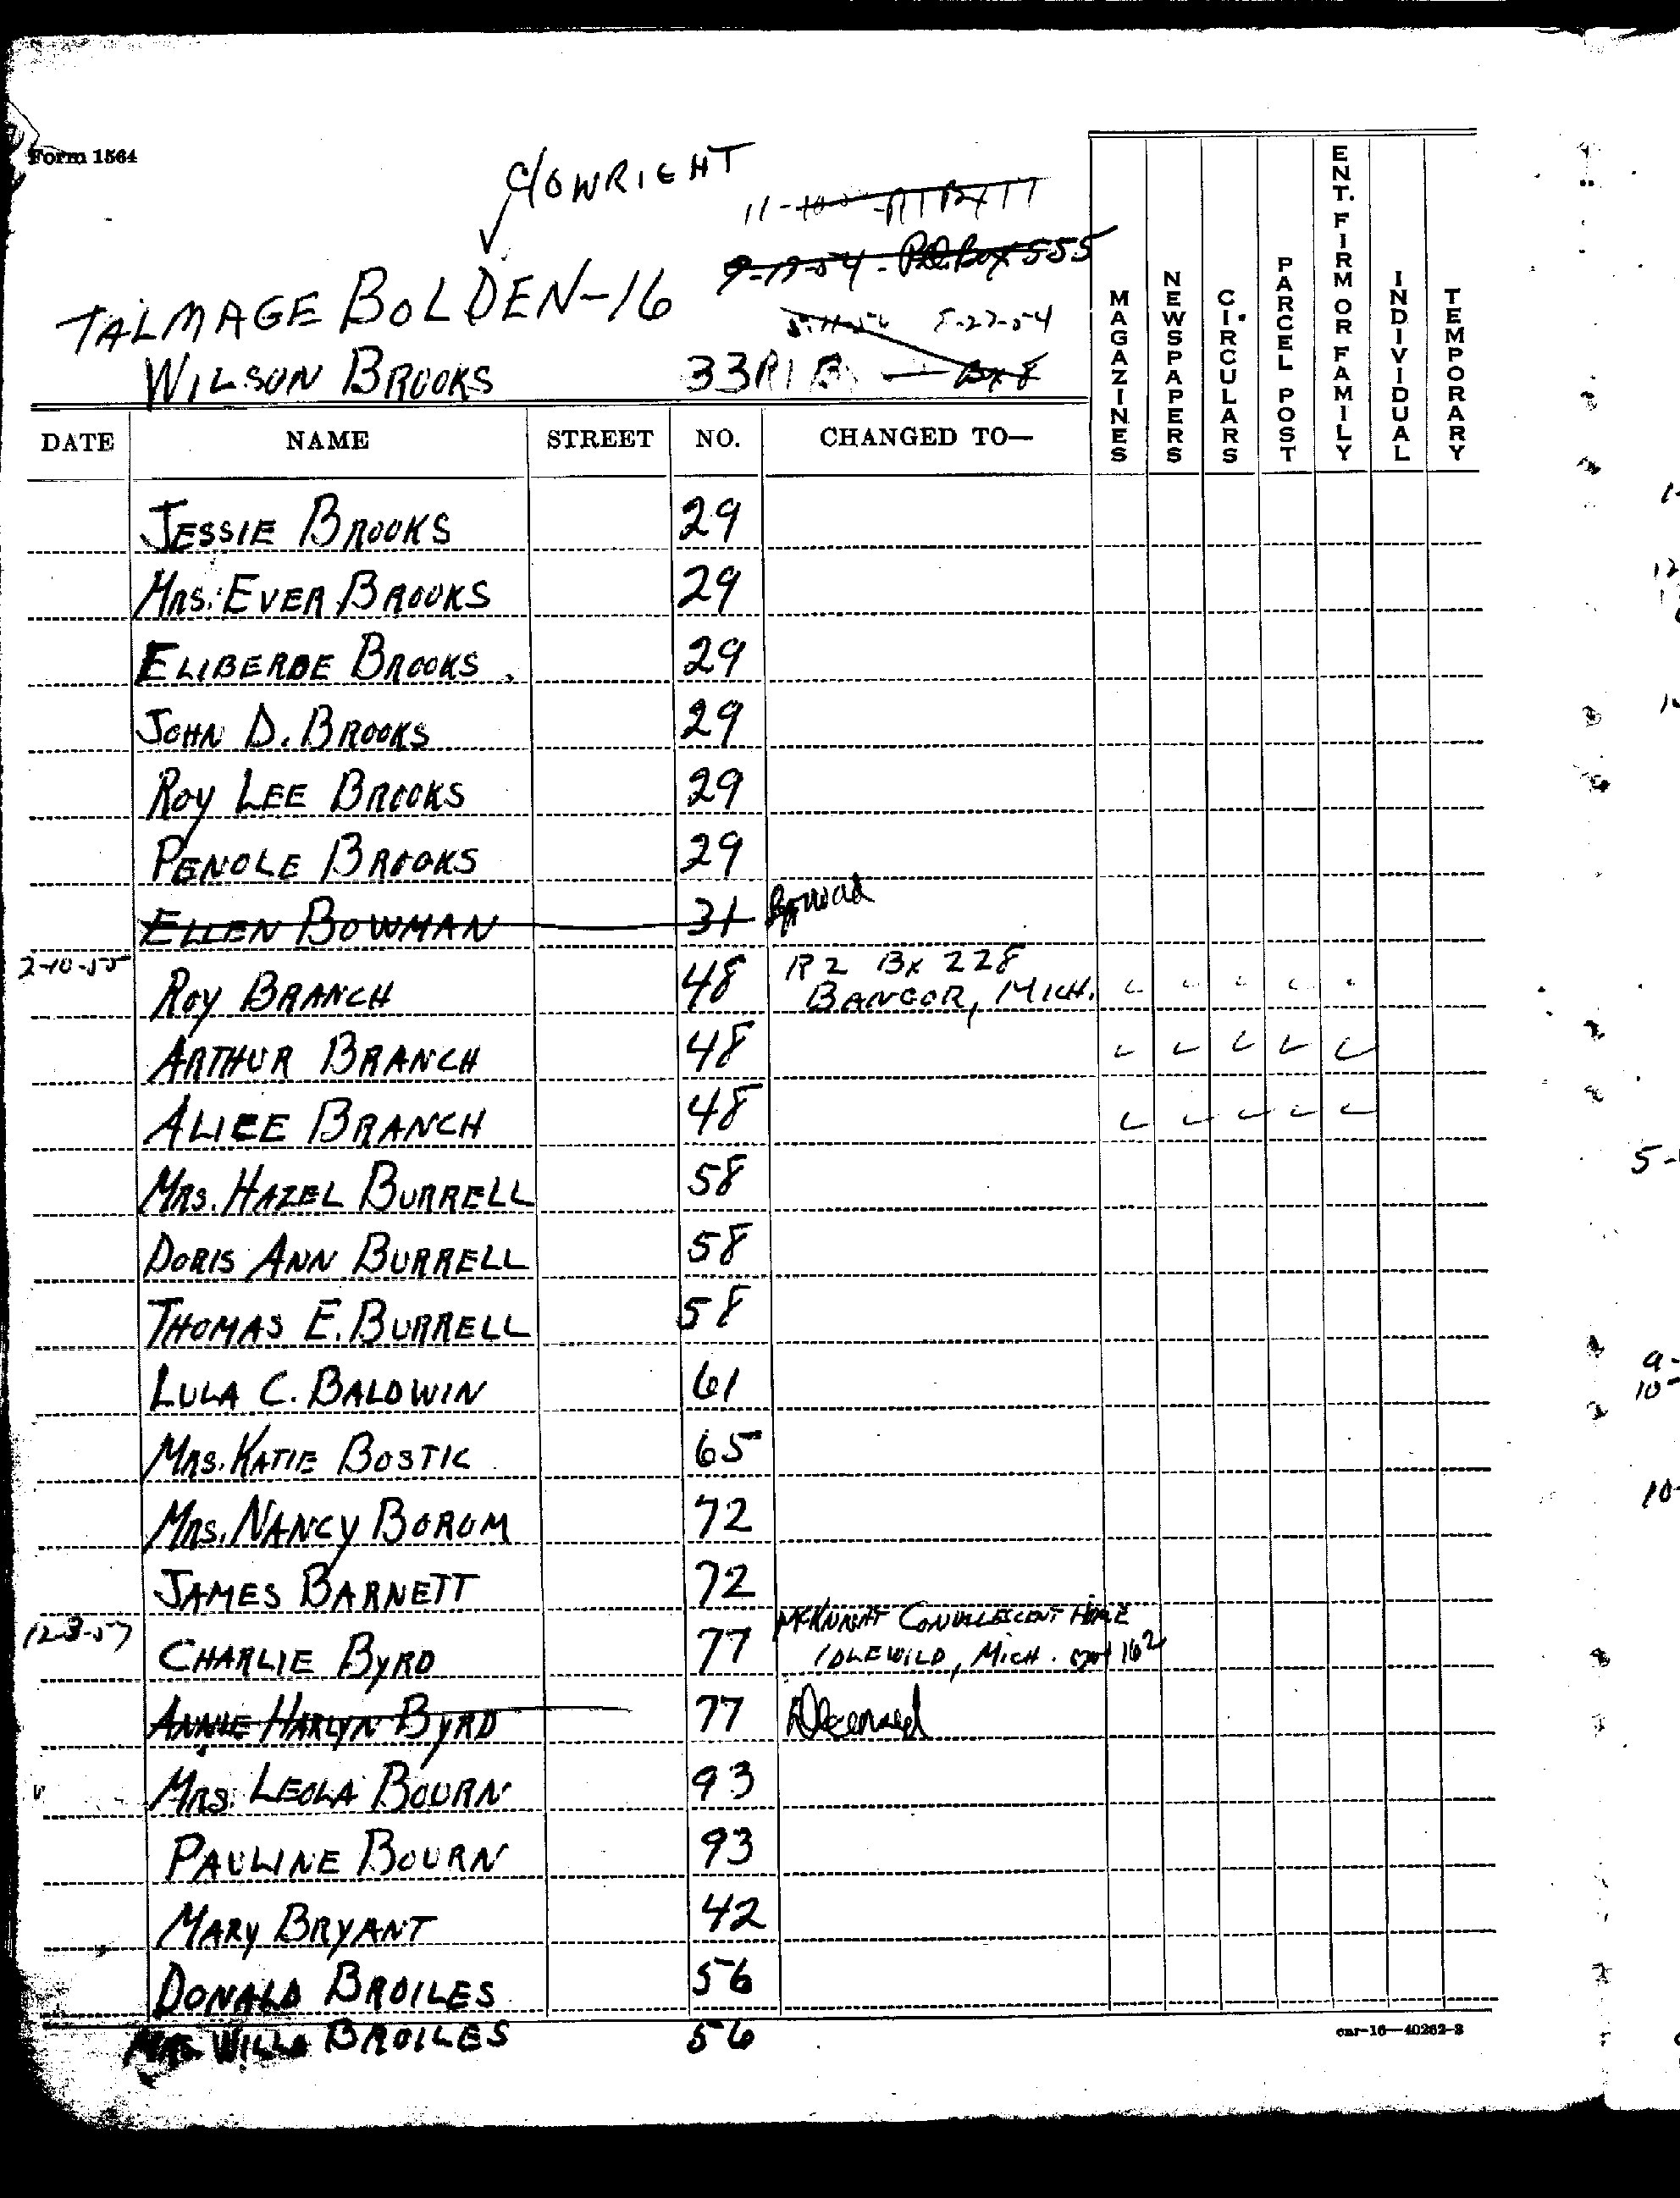 Form 1564
C/O WRIGHT
11-10 R1 BX 17
9-17-54 - P.O. Box 555
TALMAGE BOLDEN-16
5-27-54
WILSON BROOKS 33 R1 B Bx 8
DATE NAME STREET NO. CHANGED TO— MAGAZINES NEWSPAPERS CIRCULARS PARCEL POST ENT. FIRM OR FAMILY INDIVIDUAL TEMPORARY
JESSIE BROOKS 29
MRS. EVER BROOKS 29
ELIBERDE BROOKS 29
JOHN D. BROOKS 29
ROY LEE BROOKS 29
PENOLE BROOKS 29
ELLEN BOWMAN 31
2-10-55 ROY BRANCH 48 R 2 BX 228 BANGOR, MICH.
ARTHUR BRANCH 48
ALICE BRANCH 48
MRS. HAZEL BURRELL 58
DORIS ANN BURRELL 58
THOMAS E. BURRELL 58
LULA C. BALDWIN 61
MRS. KATIE BOSTIC 65
MRS. NANCY BOROM 72
JAMES BARNETT 72
12-3-57 CHARLIE BYRD 77 MCKNIGHT CONVALESCENT HOME IDLEWILD, MICH. 162
ANNIE HARLYN BYRD 77 Deceased
MRS. LEOLA BOURN 93
PAULINE BOURN 93
MARY BRYANT 42
DONALD BROILES 56
MRS. WILLA BROILES 56
c27-16—40262-3